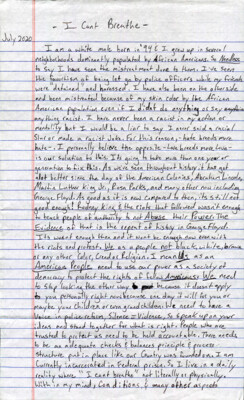 - I Cant Breathe -
July 2020
I am a white male born in '94 & I grew up in several
neighborhoods dominantly populated by African Americans & Needless
to Say I have seen the mistreatment done to them. I've seen
the favoritism of being let go by police officers while my friends
were detained and harassed. I have also been on the other side
and been mistreated because of my skin color by the African
American population even if I didn't do anything or say anything
racist. I have never been a racist in my action or
mentality but I would be a liar to say I never said a racial
Slur or made a racist Joke. For this reason, hate breeds more
hate. I personally believe the opposite - love breeds more love -
is our solution to this. Its going to take more than one year or
generation to fix this. As we've seen throughout history it has got
alot better since the day of the American Colonies, Abraham Lincoln,
Martin Luther King Jr., Rosa Parks, and many other now including
George Floyd. As good as it is now compared to then, its still not
good enough! Rodney King & the riots that followed wasn't enough
to teach people of authority to not Abuse their Power. The
Evidence of that is the repeat of history in George Floyd.
Its wasn't enough then and it wont be enough now even with
the riots and protests. We as a people, not black, white,
or any other, Color, Creed or Religion. I mean We as an
American People need to use our power as a society of
democracy to protect the rights of fellow Americans. We need
to stop looking the other way because it doesn't apply
to you personally right now because one day it will be you or
maybe your children or even grandchildren. We need to have a
Voice in police reform, Silence = Violence, so speak up on your
ideas and stand together for what is right. People who are
trusted to protect us need to be held accountable. There needs
to be an adequate checks & balances principle & process
structure put in place like our Country was founded on. I am
currently incarcerated in Federal prison. So I live in a daily
reality where "I cant breathe" not literally or physically,
With in my mind, Conditions, & many other aspects